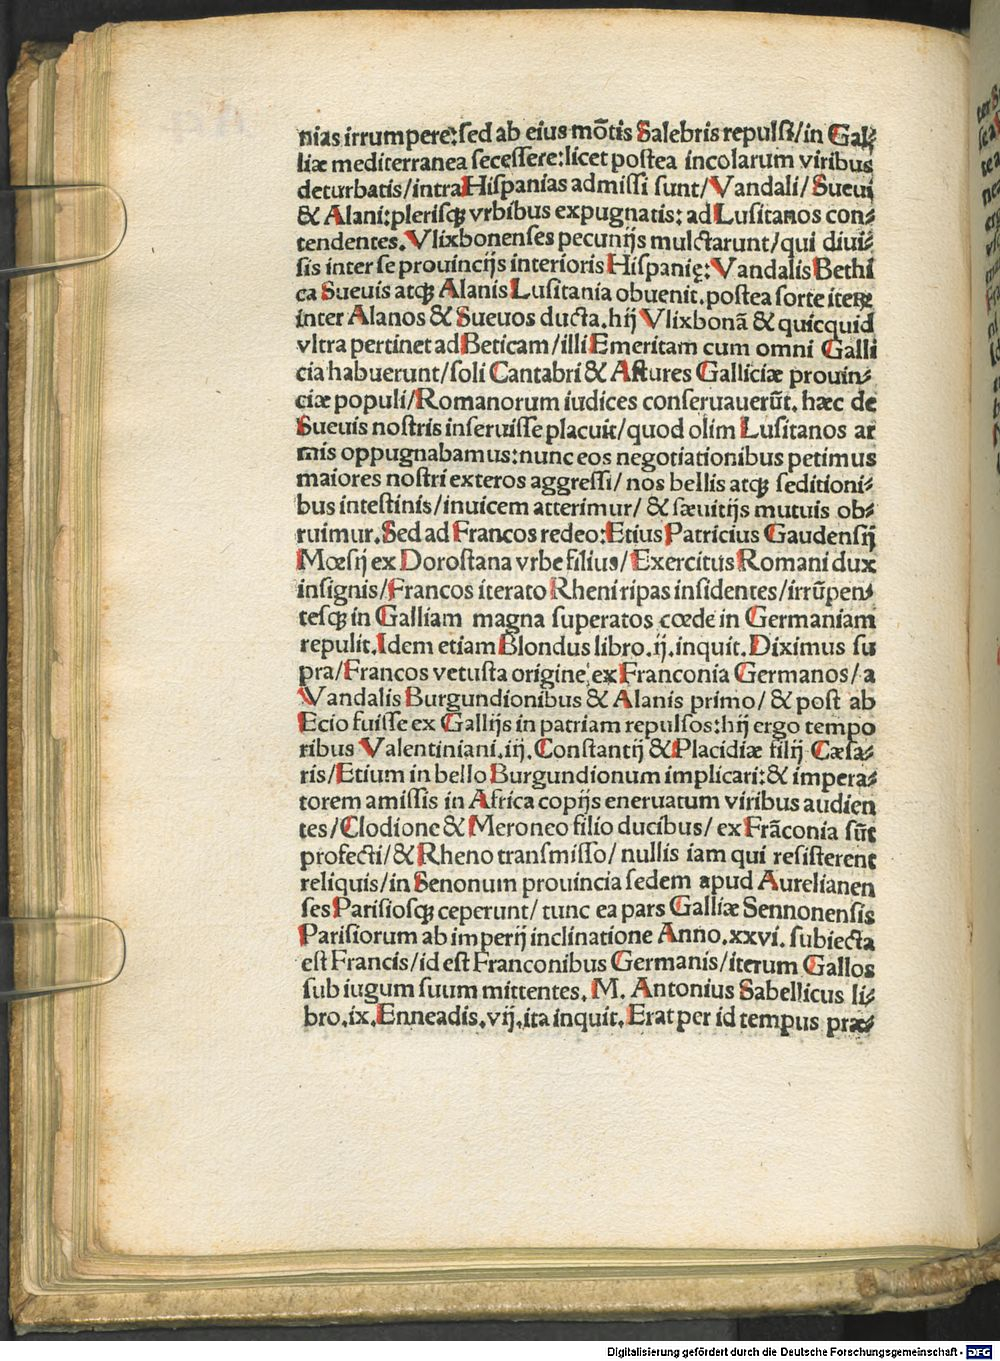 nias irrumpere:sed ab eius mōtis Salebris repulsi/in Gal⸗
liæ mediterranea secessere:licet postea incolarum viribus
deturbatis/intra Hispanias admissi sunt/Vandali/Sueui
& Alani:plerisqꝫ vrbibus expugnatis: ad Lusitanos con⸗
tendentes.Vlixbonenses pecunijs mulctarunt/qui diui⸗
sis inter se prouincijs interioris Hispanię:Vandalis Bethi
ca Sueuis atqꝫ Alanis Lusitania obuenit.postea sorte iterꝛ
inter Alanos & Sueuos ducta.hij Vlixbonā & quicquid
vltra pertinet ad Beticam/illi Emeritam cum omni Galli
cia habuerunt/soli Cantabri & Astures Galliciæ prouin⸗
ciæ populi/Romanorum iudices conseruauerūt. hæc de
Sueuis nostris inseruisse placuit/quod olim Lusitanos ar
mis oppugnabamus:nunc eos negotiationibus petimus
maiores nostri exteros aggressi/nos bellis atqꝫ seditioni⸗
bus intestinis/inuicem atterimur/ & sæuitijs mutuis ob⸗
ruimur.Sed ad Francos redeo:Etius Patricius Gaudensij
Mœsij ex Dorostana vrbe filius/Exercitus Romani dux
insignis/Francos iterato Rheni ripas insidentes/irrūpen⸗
tesqꝫ in Galliam magna superatos cœde in Germaniam
repulit.Idem etiam Blondus libro.ij.inquit.Diximus su
pra/Francos vetusta origine ex Franconia Germanos/a
Vandalis Burgundionibus & Alanis primo/ & post ab
Ecio fuisse ex Gallijs in patriam repulsos:hij ergo tempo
ribus Valentiniani.iij.Constantij & Placidiæ filij Cæsa⸗
ris/Etium in bello Burgundionum implicari:& impera⸗
torem amissis in Africa copijs eneruatum viribus audien
tes/Clodione & Meroneo filio ducibus/ ex Frāconia sūt
profecti/& Rheno transmisso/nullis iam qui resisterent
reliquis/in Senonum prouincia sedem apud Aurelianen
ses Parisiosqꝫ ceperunt/ tunc ea pars Galliæ Sennonensis
Parisiorum ab imperij inclinatione Anno.xxvi. subiecta
est Francis/id est Franconibus Germanis/iterum Gallos
sub iugum suum mittentes. M. Antonius Sabellicus li⸗
bro.ix.Enneadis.vij.ita inquit.Erat per id tempus præ⸗
Digitalisierung gefördert durch die Deutsche Forschungsgemeinschaft - DFG